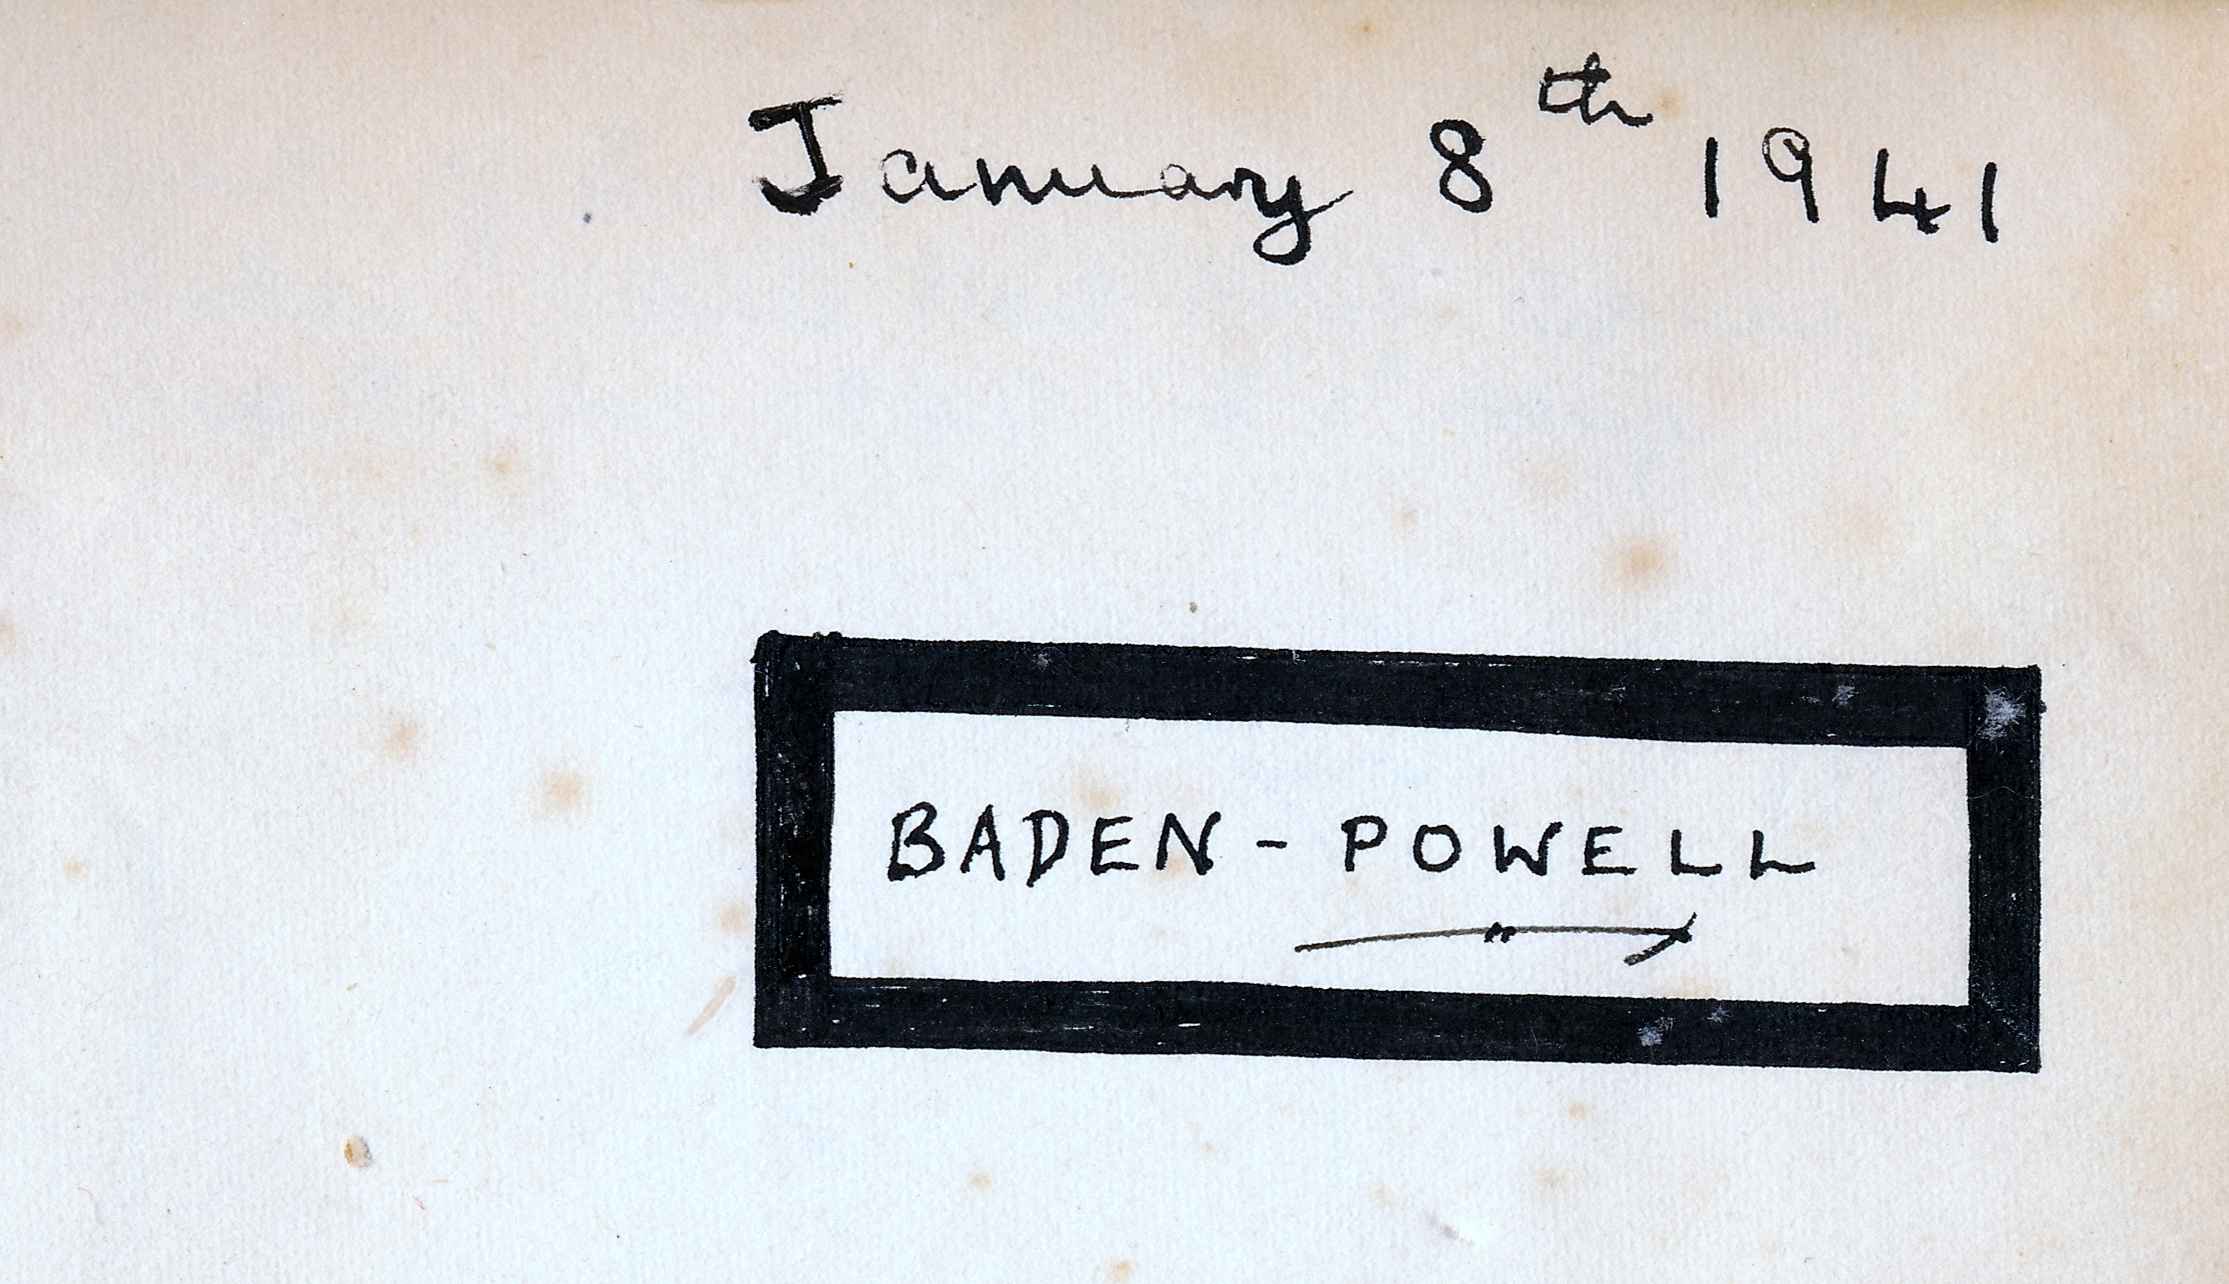 January 8th 1941
BADEN - POWELL